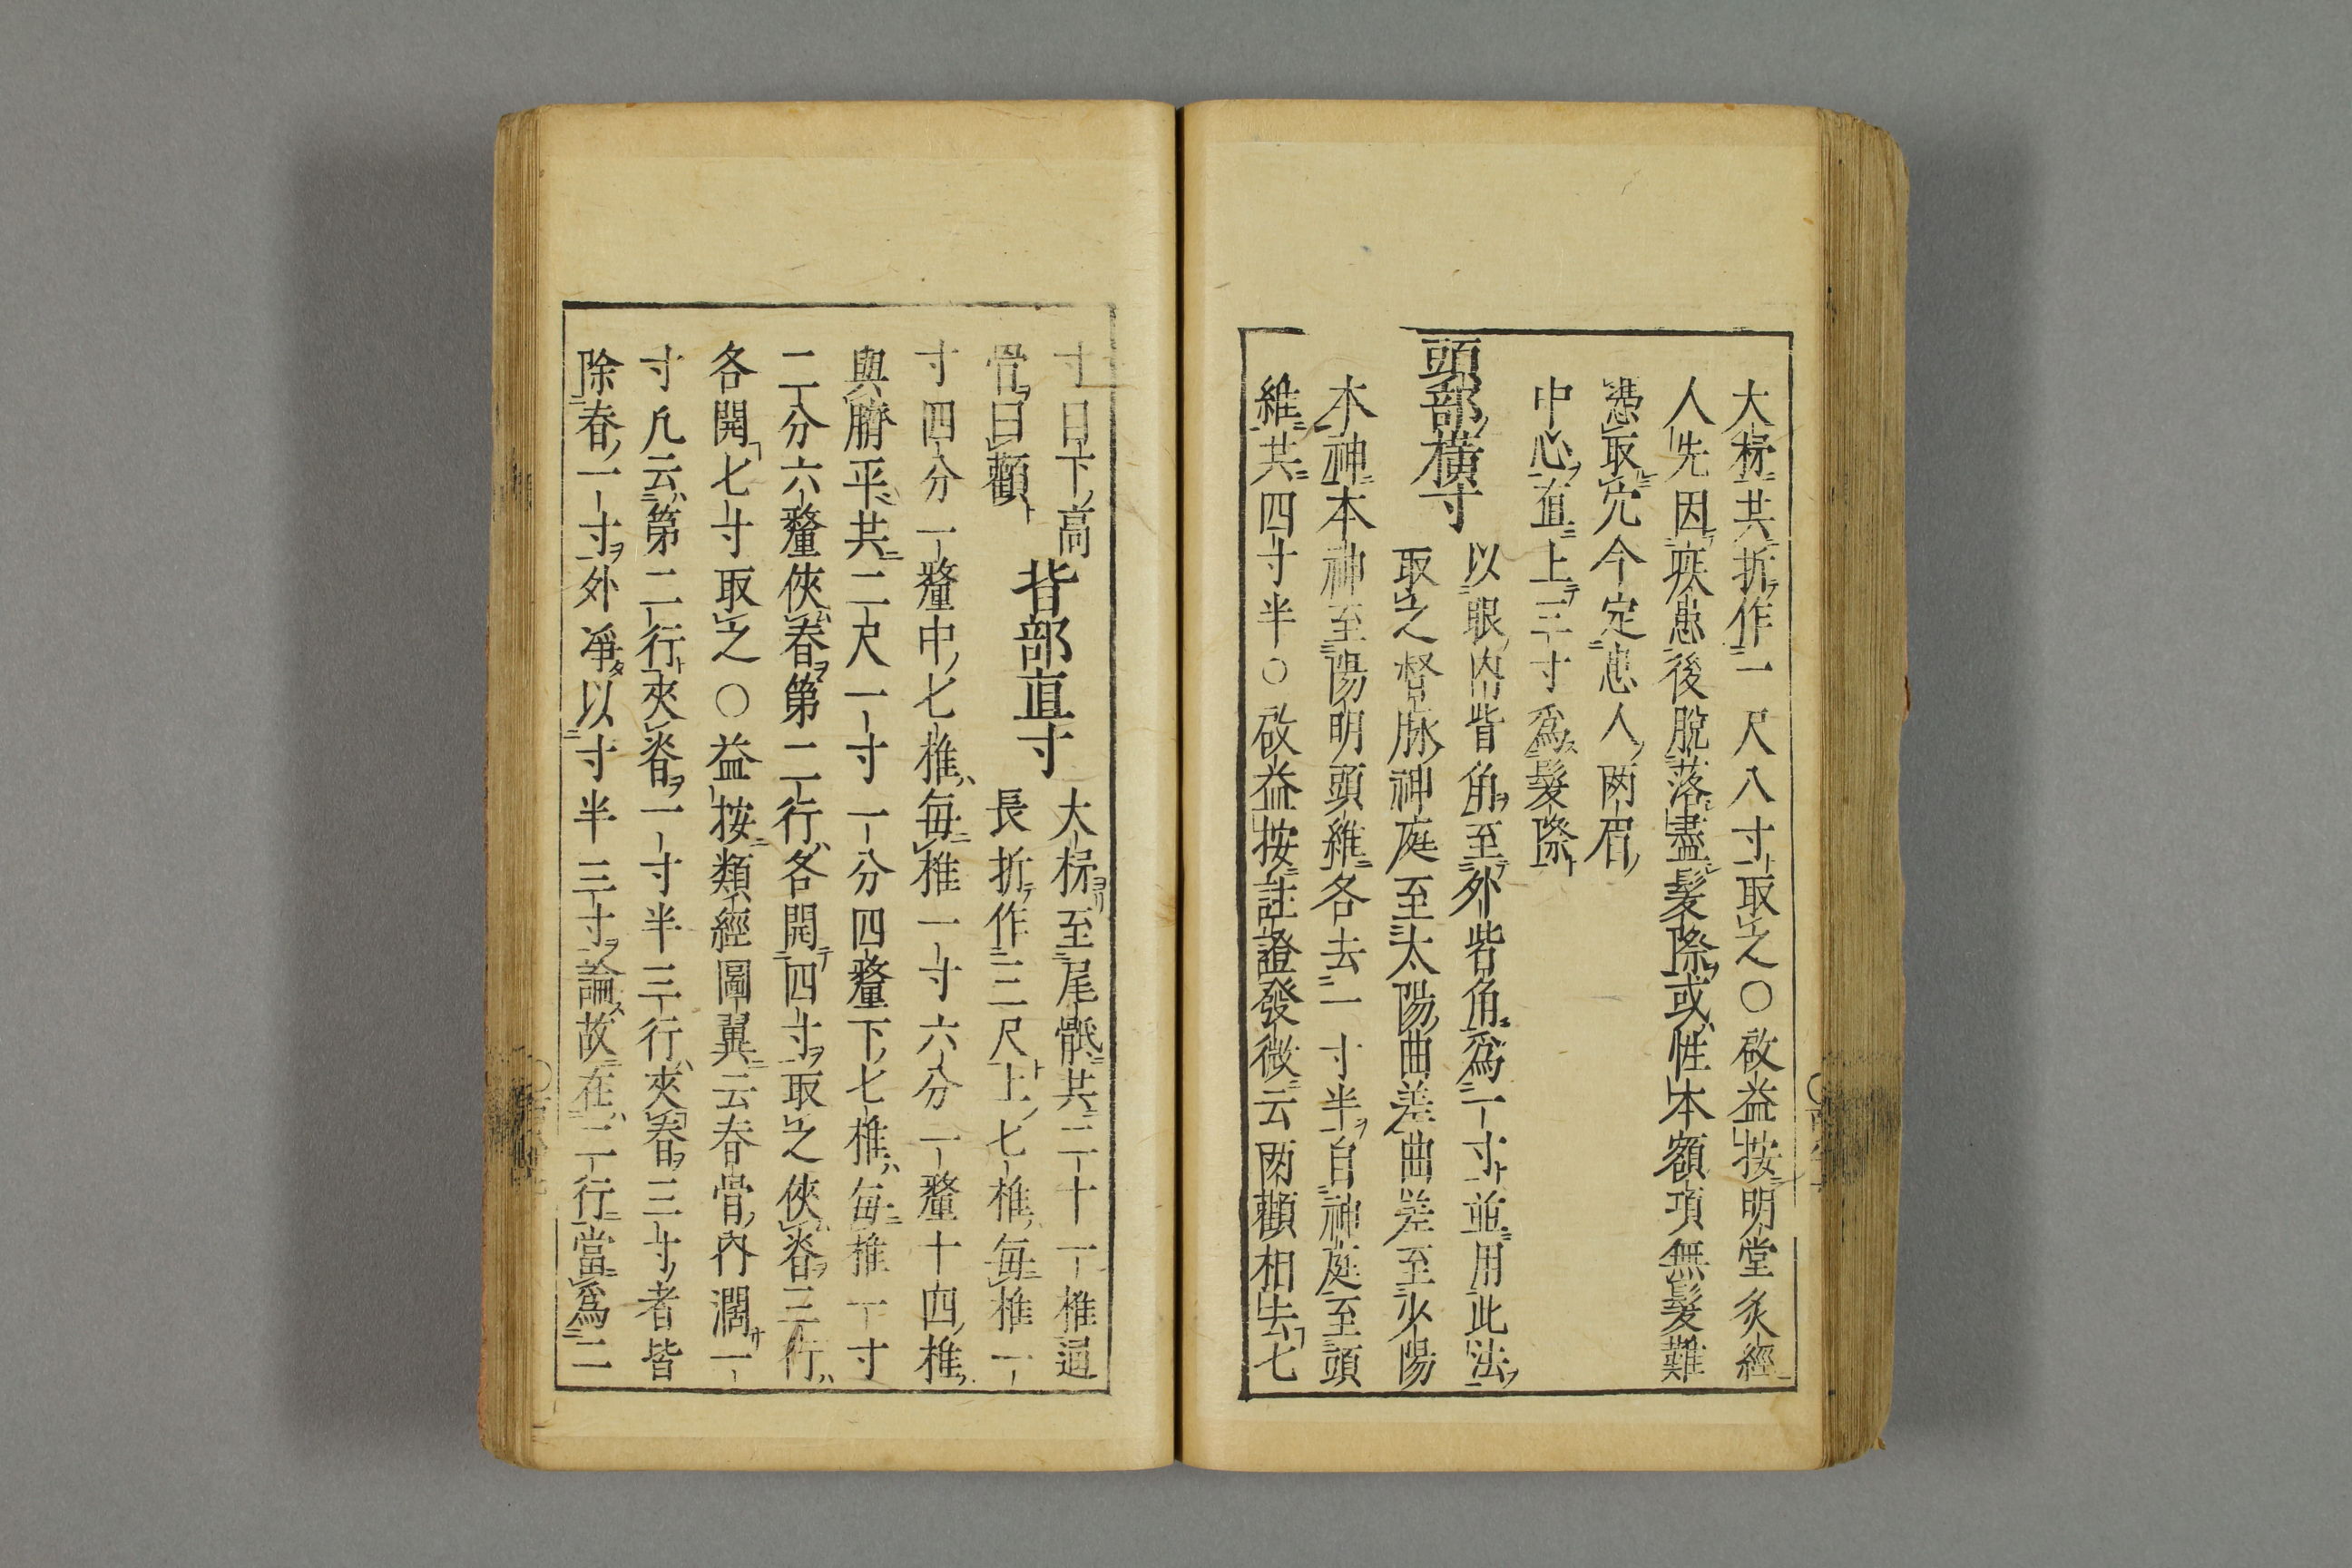 大杼共折作一尺八寸取之○啟益按明堂灸經
人先因疾患後脫落盡髮際或性本額項無髮難
憑取穴今定患人兩眉
中心直上三寸爲髮際
頭部橫寸
以眼內眥角至外眥角爲一寸並用此法
取之督脉神庭至太陽曲差曲差至少陽
本神本神至陽明頭維各去一寸半自神庭至頭
維共四寸半○啟益按註證發微云兩顴相去七
寸目下高
骨曰顴
背部直寸
大杼至尾骶共二十一椎通
長折作三尺上七椎每椎一
寸四分一釐中七椎每椎一寸六分一釐十四椎
與臍平共二尺一寸一分四釐下七椎每椎一寸
二分六釐俠脊第二行各開四寸取之俠脊三行
各開七寸取之○益按類經圖翼云脊骨內濶一
寸凡云第二行夾脊一寸半三行夾脊三寸者皆
除脊一寸外淨以寸半三寸論故在二行當爲二